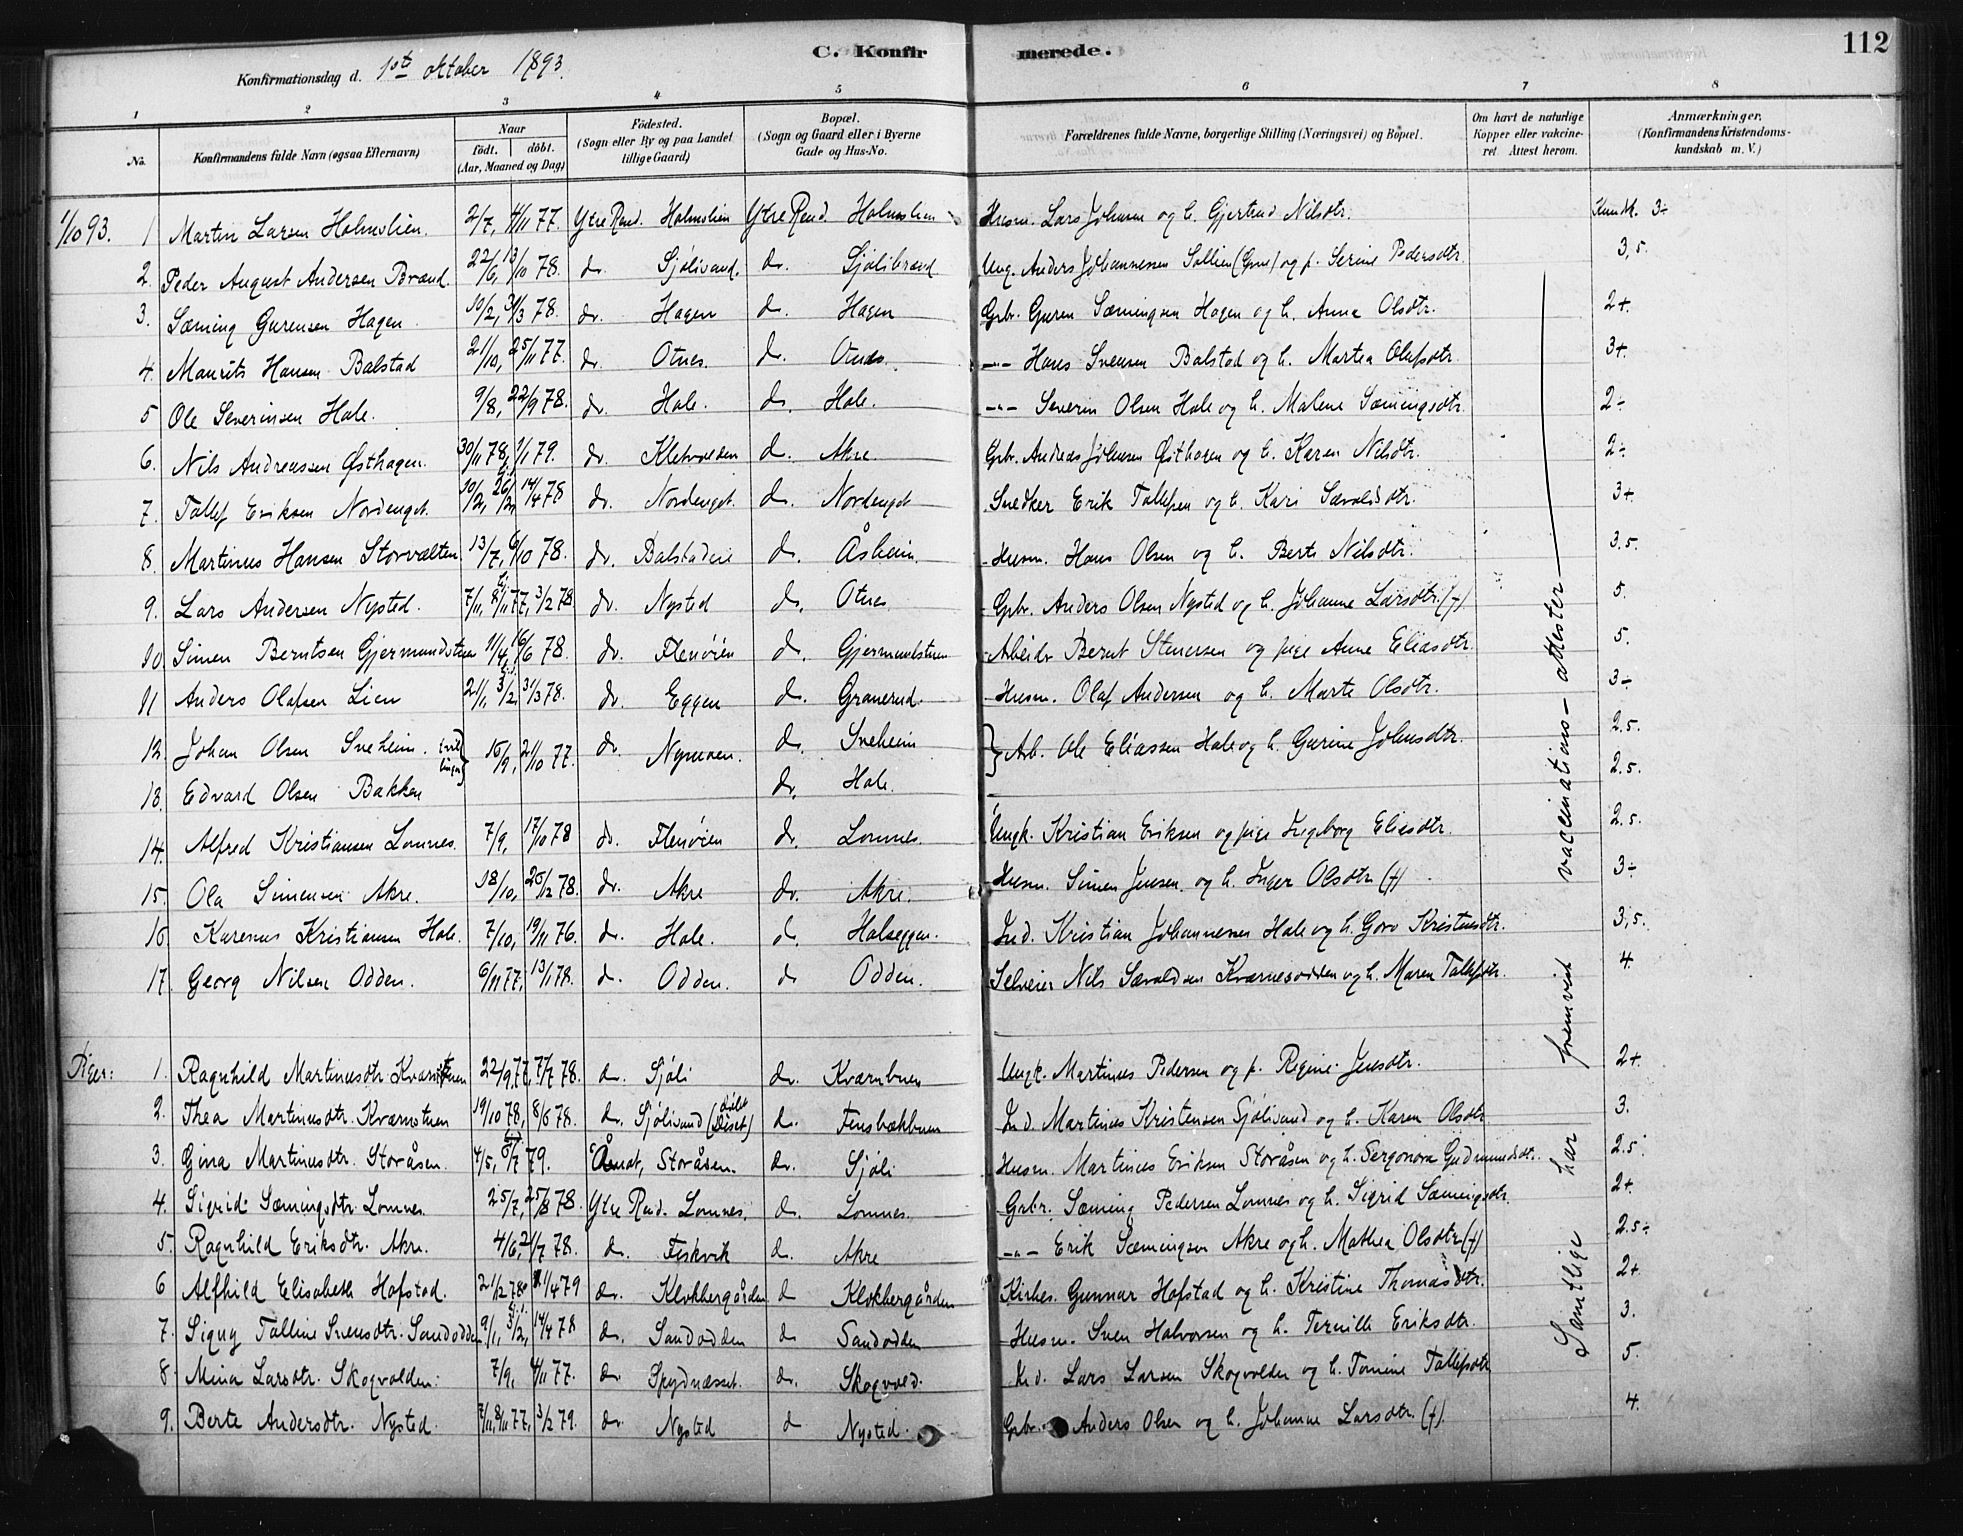 C. Konfirmerede.
112
Konfirmationsdag d. 1ste oktober 1893.
1 2 3 4 5 6 7 8
No. Konfirmandens fulde Navn (ogsaa Efternavn) Naar födt. döbt. (Aar, Maaned og Dag) Födested. (Sogn eller By og paa Landet tillige Gaard) Bopæl. (Sogn og Gaard eller i Byerne Gade og Hus-No. Forældrenes fulde Navne, borgerlige Stilling (Næringsvei) og Bopæl. Om havt de naturlige Kopper eller vakcineret. Attest herom. Anmærkninger. (Konfirmandens Kristendomskundskab m. V.)
1/10 93. 1 Martin Larsen Holmslien. 2/7, 4/11 77. Ytre Rend. Holmslien Ytre Rend Holmslien Husm. Lars Johnsen og h. Gjertrud Nilsdtr. Kundsk. 3÷
2. Peder August Andersen Brænd. 22/6, 13/10 78. do. Sjölivand. do. Sjölibrænd Ung. Anders Johannessen Sollien og p. Serine Pedersdtr. 3,5.
3. Sæming Gurensen Hagen 10/2, 31/3 78. do. Hagen do. Hagen Gbr. Guren Sæmingsen Hagen og h. Anna Olsdtr. 2+
4. Maurits Hansen Balstad 21/10, 25/11 77. do. Otnes. do. Otnes. -"- Hans Svensen Balstad og h. Martea Olafsdtr. 3+.
5 Ole Severinsen Hole. 9/8, 22/9 78. do. Hole. do. Hole. -"- Severin Olsen Hole og h. Malene Sæmingsdtr. 2÷
6. Nils Andreassen Østhagen. 30/11 78, 1/1 79. do. Kletvolden do. Akre Gbr. Andreas Johnsen Østhagen og h. Karen Nilsdtr. 2÷
7. Tollef Eriksen Nordenget. 10/2, 26/2, 14/4 78 do. Nordenget. do. Nordenget Snedker Erik Tollefsen og h. Kari Sævoldsdtr. 3+
8. Martinus Hansen Storvælten 13/7, 6/10 78. do. Balstadeie do. Åsheim. Husm. Hans Olsen og h. Berte Nilsdtr. 3.5.
9. Lars Andersen Nysted. 7/11, 8/11 77, 3/2 78 do. Nysted do. Otnes. Gbr. Anders Olsen Nysted og h. Johanne Larsdtr. (†) 5.
10 Simen Berntsen Gjermundstuen 11/4, 16/6 78. do. Flenöien do. Gjermundstuen Arbeidr Bernt Stenersen og pige Anne Eliasdtr. 5.
11 Anders Olafsen Lien 21/1, 3/2, 31/3 78. do. Eggen do. Granerud. Husm. Olaf Andersen og h. Marte Olsdtr. 3÷
12. Johan Olsen Sveheim. tvillinger 15/9, 21/10 77. do. Nymoen. do. Sveheim Arb. Ole Eliassen Hole og h. Gurine Johnsdtr. 2.5.
13. Edvard Olsen Bakken do. Hole. 2.5.
14. Alfred Kristiansen Lomnes. 7/9, 17/10 78 do. Flenöien do. Lomnes. Ungk. Kristian Eriksen og pige Ingeborg Eliasdtr. 2.5.
15. Ola Simensen Akre. 18/10, 26/12 78. do. Akre do. Akre. Husm. Simen Jensen og h. Inger Olsdtr (†) 3÷
16 Karenus Kristiansen Hole. 7/10, 19/11 76. do. Hole. do. Holseggen. Ind. Kristian Johannessen Hole og h. Goro Kristensdtr. 3,5.
17. Georg Nilsen Odden. 6/11 77, 13/1 78. do. Odden. do Odden. Selveier Nils Sævoldsen Kværnesodden og h. Maren Tollefsdtr. 4.
Piger: 1. Ragnhild Martinusdtr Kværnstuen 22/9 77, 7/7 78. do. Sjöli do. Kværnbuen Ungk. Martinus Pedersen og p. Regine Jensdtr. 2+
2. Thea Martinusdtr. Kværnstuen 19/10 78, 8/6 78. do. Sjölivand do. Fensbækbuen Ind. Martinus Kristensen Sjölivand og h. Karen Olsdtr 3.
3. Gina Martinusdtr. Storåsen. 4/5, 6/7 79. Åmot, Storåsen. do. Sjöli Husm. Martinus Eriksen Storåsen og h. Sergonora Gudmundsdtr. 2.5
4. Sigrid Sæmingsdtr. Lomnes. 25/7, 25/8 78. Ytre Rend. Lomnes. do. Lomnes. Gbr. Sæming Pedersen Lomnes og h. Sigrid Sæmingsdtr. 2+
5. Ragnhild Eriksdtr. Akre. 4/6, 21/7 78. do. Fiskvik do. Akre -"- Erik Sæmingsen Akre og h. Mathea Olsdtr. (†) 2.5÷
6 Alfhild Elisabeth Hofstad. 21/12 78, 11/4 79 do. Klokkergården do Klokkergården Kirkes. Gunnar Hofstad og h. Kristine Thomasdtr. 2+
7. Signy Talline Svensdtr. Sandodden 9/1, 3/2, 14/4 78 do. Sandodden do Sandodden Husm. Sven Halvorsen og h. Pernille Eriksdtr. 3.
8. Mina Larsdtr. Skogvolden. 7/9, 4/11 77. do. Spydnæsset. do. Skogvold. Ind. Lars Larsen Skogvolden og h. Tomine Tollefsdtr 5.
9. Berte Andersdtr. Nysted. 7/11, 8/11 77, 3/2 79. do. Nysted do Nysted. Gbr. Anders Olsen og h. Johanne Larsdtr. (†). 4.
Samtlige har fremvist vaccinations-attester